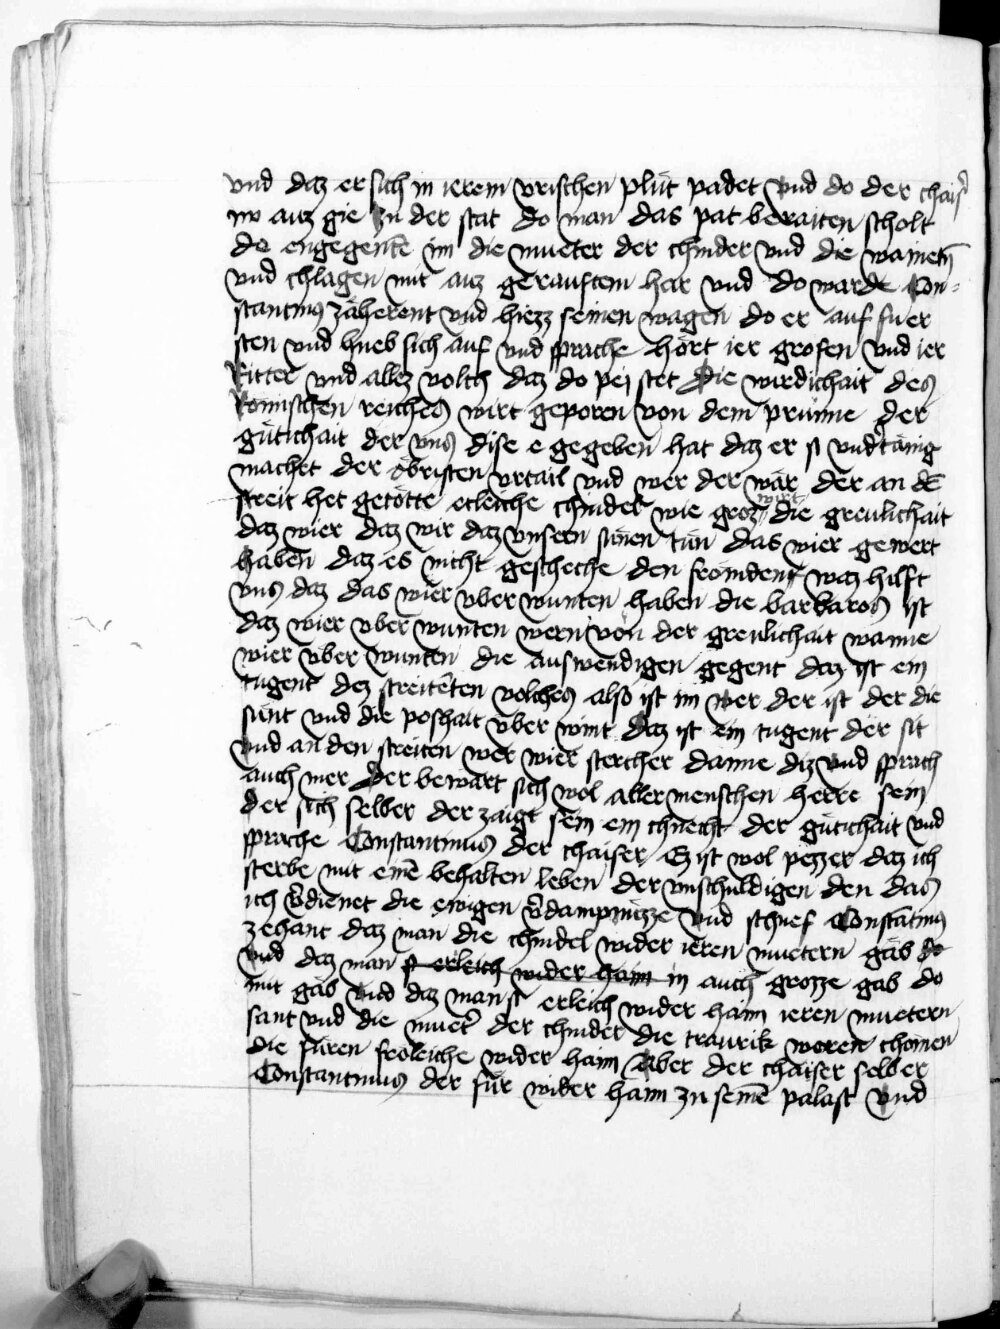 vnd daz er sich in ierem vrischen plut padet vnd do der chaiser
nv auz gie zu der stat do man das pat beraiten scholt
do engegente im die mueter der chinder vnd die wainetn̄
vnd chlagen mit auz gerauftem har vnd do warde Con-
stantinus zäherent vnd hiezz seinen wagen do er auf fuer
sten vnd hueb sich auf vnd sprache hört ier grofen vnd ier
Ritter vnd allez volch daz do pei stet Die wirdichait des
römischen reiches wirt geporen von dem prunne der
gütichait der vns dise e gegeben hat daz er si vnd̾tänig
machet der öbristen vrtail vnd wer der wär der an dē
streit het getötte etleiche chinder wie groz wirt die greulichait
daz wier daz wir daz vnsern sünen tün das wier gewert
haben daz es nicht gescheche den fromden waz hilft
vns daz das wier vber wunten haben die barbaros ist
daz wier vber wunten wern von der greulichait wanne
wier vber wunten die auswendigen gegent daz ist ein
tugent dez streitēten volches also ist im wer der ist der die
sünt vnd die poshait vber wint daz ist ein tugent der sit
vnd an den streiten wer wier stercher danne diz vnd sprach
auch mer Der bewärt sich wol aller menschen herre sein
der sich selber der zaigt sein ein chnecht der gütichait vnd
sprache Constantinus der chaiser Ez ist wol pezzer daz ich
sterbe mit einē behalten leben der vnschuldigen den das
ich v̾dienet die ewigen v̾dampnüzze vnd schuef Constātinus
zehant daz man die chindel wider ieren muetern gäb do
vnd daz man si erleich wider haim in auch grozze gab do
mit gäb vnd daz man si erleich wider haim ieren muetern
sant vnd die muet̾ der chinder die traurik woren chomen
die füren fröleiche wider haim Aber der chaiser selber
Constantinus der für wider haim zu seinē palast vnd